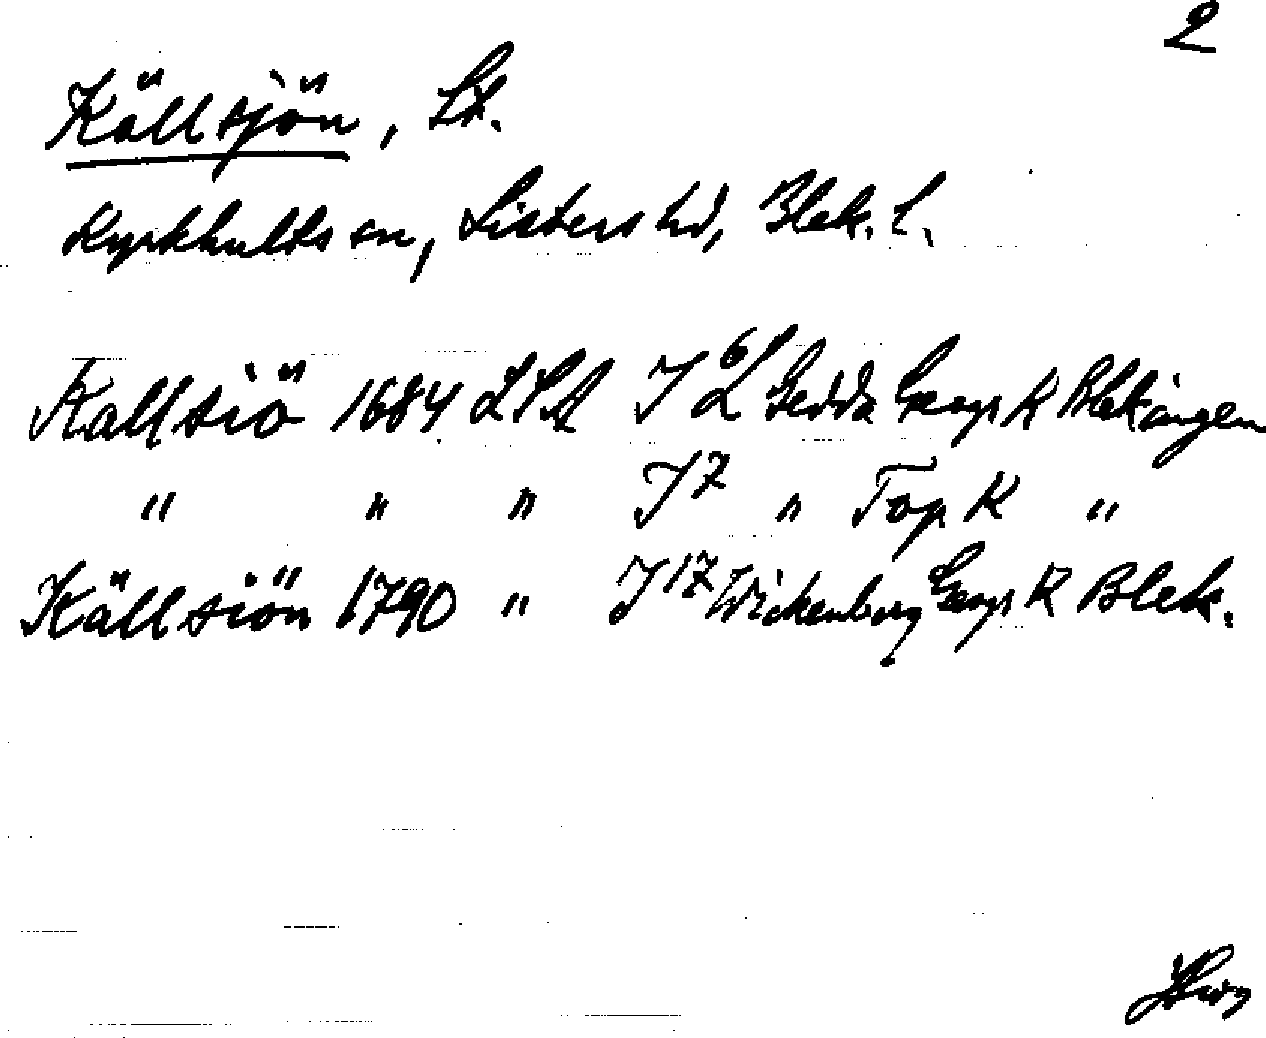 2
Källsjön, St.
Kyrkhults sn, Listers hd, Blek. l.
Kallsiö 1684 LSA J 6/2 Gedda Geogr K Blekingen
" " " J7 " Top K "
Källsiön 1790 " J17 Wickenberg Geogr K Blek.